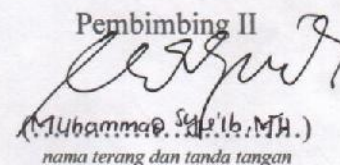 Pembimbing II
(Muhammad Syu'ib, MH.)
nama terang dan tanda tangan